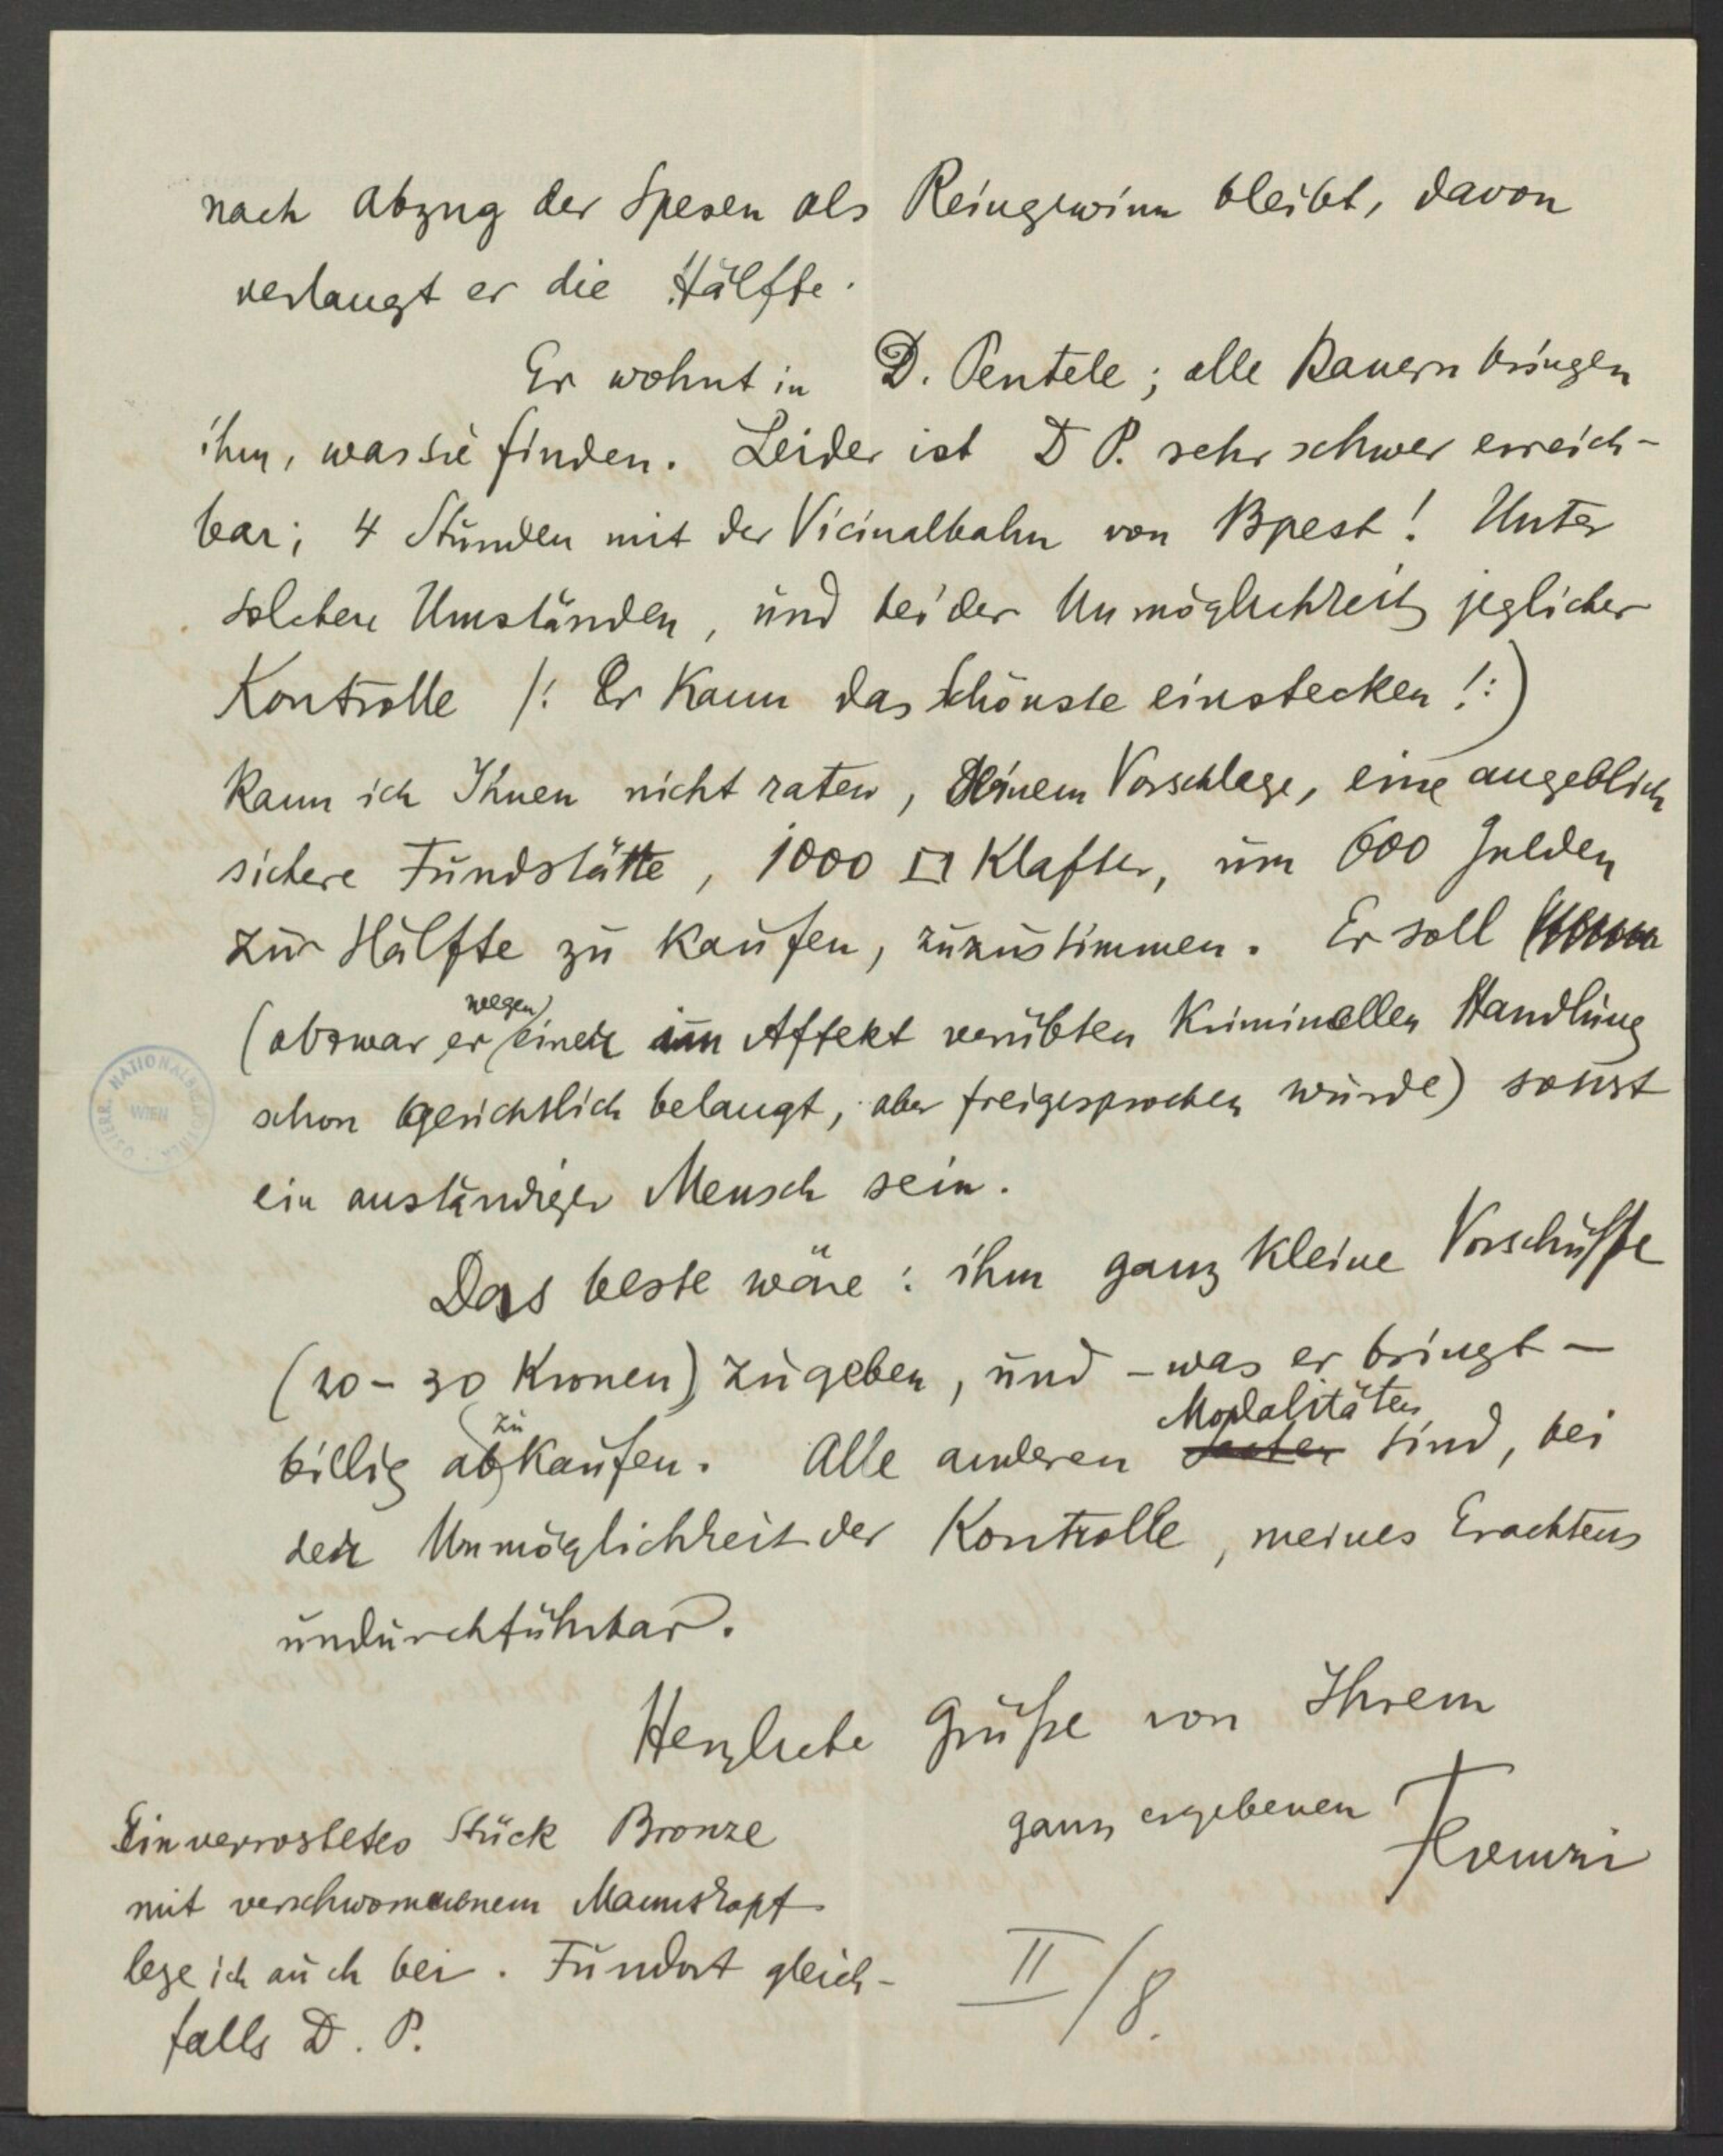 nach Abzug der Spesen als Reingewinn bleibt, davon
verlangt er die Hälfte.
Er wohnt in D. Pentele; alle Bauern bringen
ihm, was sie finden. Leider ist D P. sehr schwer erreich-
bar; 4 Stunden mit der Vicinalbahn von Bpest! Unter
solchen Umständen, und bei der Unmöglichkeit jeglicher
Kontrolle /: Er kann das Schönste einstecken!:)
kann ich Ihnen nicht raten, seinem Vorschlage, eine angeblich
sichere Fundstätte, 1000 □ Klafter, um 600 Gulden
zur Hälfte zu kaufen, zuzustimmen. Er soll
(obzwar er wegen einer im Affekt verübten kriminellen Handlung
schon gerichtlich belangt, aber freigesprochen wurde) sonst
ein anständiger Mensch sein.
Das beste wäre: ihm ganz kleine Vorschüsse
(20 - 30 Kronen) zu geben, und - was er bringt -
billig abzukaufen. Alle anderen Modalitäten sind, bei
der Unmöglichkeit der Kontrolle, meines Erachtens
undurchführbar.
Herzliche Grüße von Ihrem
ganz ergebenen
Ein verrostetes Stück Bronze
mit verschwommenem Mannskopf
lege ich auch bei. Fundort gleich-
falls D. P.
II/8.
ÖSTERR. NATIONALBIBLIOTHEK WIEN